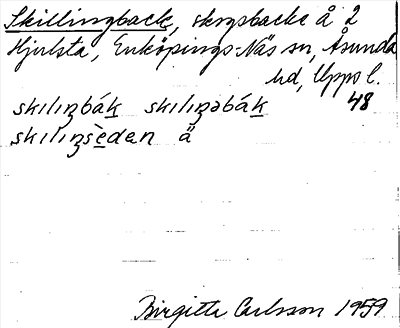 Skillingback, skogsbacke å 2
Hjulsta, Enköpings-Näs sn, Åsunda
hd, Upps l.
skiliŋbák skiliŋəbák 48
skiliŋsèdən ä
Birgitta Carlsson 1959